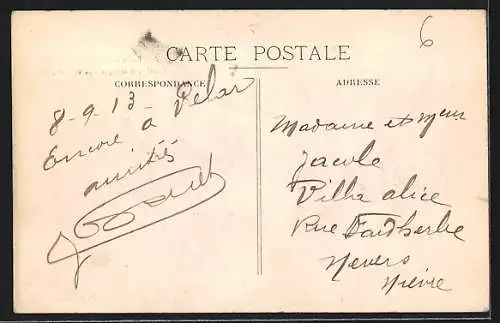 6
CARTE POSTALE
CORRESPONDANCE
8-9-13-
Encore à
amitiés
ADRESSE
Madame et
Villa alice
Rue Faidherbe
Nevers
Nièvre